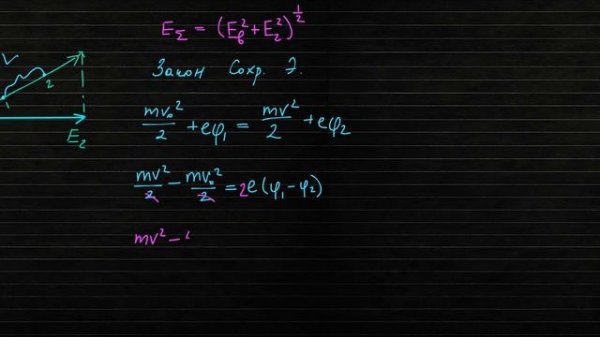 E_Σ = (E_в² + E_г²)^½
Закон Сохр. Э.
V
1 2
E₂
mv₀²/2 + eφ₁ = mv²/2 + eφ₂
mv²/2 − mv₀²/2 = 2e(φ₁ − φ₂)
mv² −